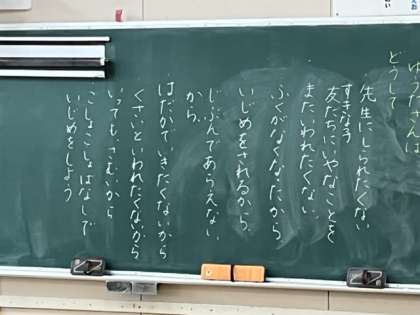 ゆうたさんは
どうして
先生にしられたくない
すきな子
友だちにいやなことを
またいわれたくない
ふくがなくなったから
いじめをされるから
じぶんであらえない
から
はだかでいきたくないから
くさいといわれたくないから
いってもさむいから
こしょこしょはなしで
いじめをしよう